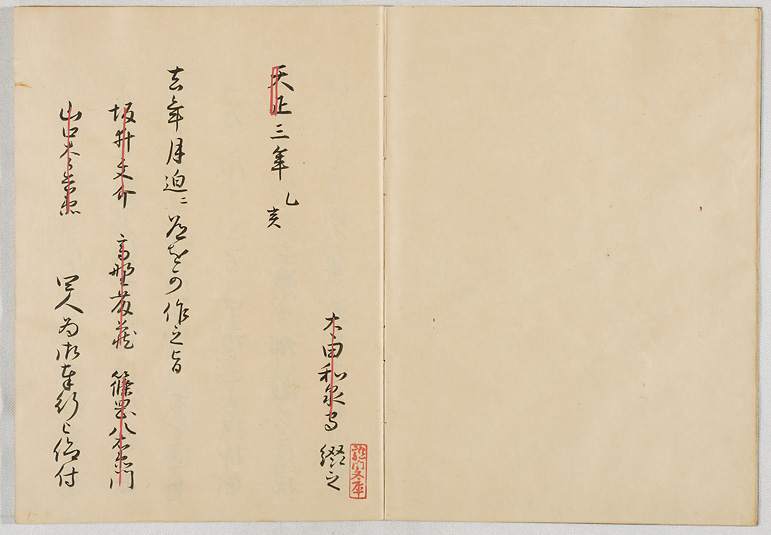 太田和泉守 綴之
天正三年 乙亥
去年月迫ニ道を可作之旨
坂井文介 高野藤蔵 篠岡八右衛門
山口太郎兵衛 四人為御奉行被仰付